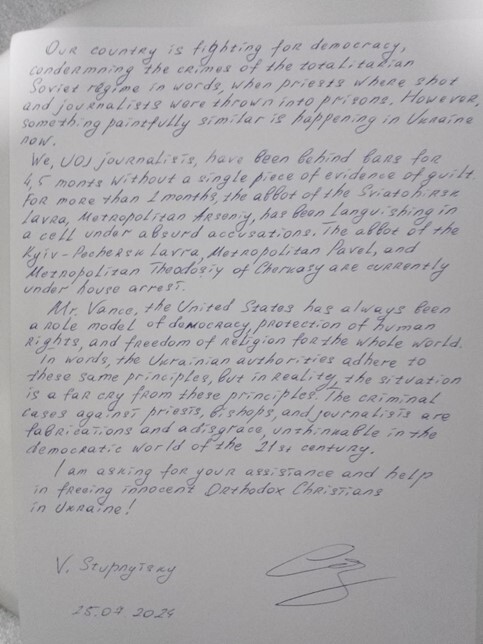 Our country is fighting for democracy,
condermning the crimes of the totalitarian
Soviet regime in words, when priests where shot
and journalists were thrown into prisons. However,
something painfully similar is happening in Ukraine
now.
We, UOJ journalists, have been behind bars for
4,5 monts without a single piece of evidence of guilt.
For more than 2 months, the abbot of the Sviatohirsk
Lavra, Metropolitan Arseniy, has been languishing in
a cell under absurd accusations. The abbot of the
Kyiv-Pechersk Lavra, Metropolitan Pavel, and
Metropolitan Theodosiy of Cherkasy are currently
under house arrest.
Mr. Vance, the United States has always been
a role model of democracy, protection of human
rights, and freedom of religion for the whole world.
In words, the Ukrainian authorities adhere to
these same principles, but in reality, the situation
is a far cry from these principles. The criminal
cases against priests, bishops, and journalists are
fabrications and a disgrace, unthinkable in the
democratic world of the 21st century.
I am asking for your assistance and help
in freeing innocent Orthodox Christians
in Ukraine!
V. Stupnytsky
25.07 2024